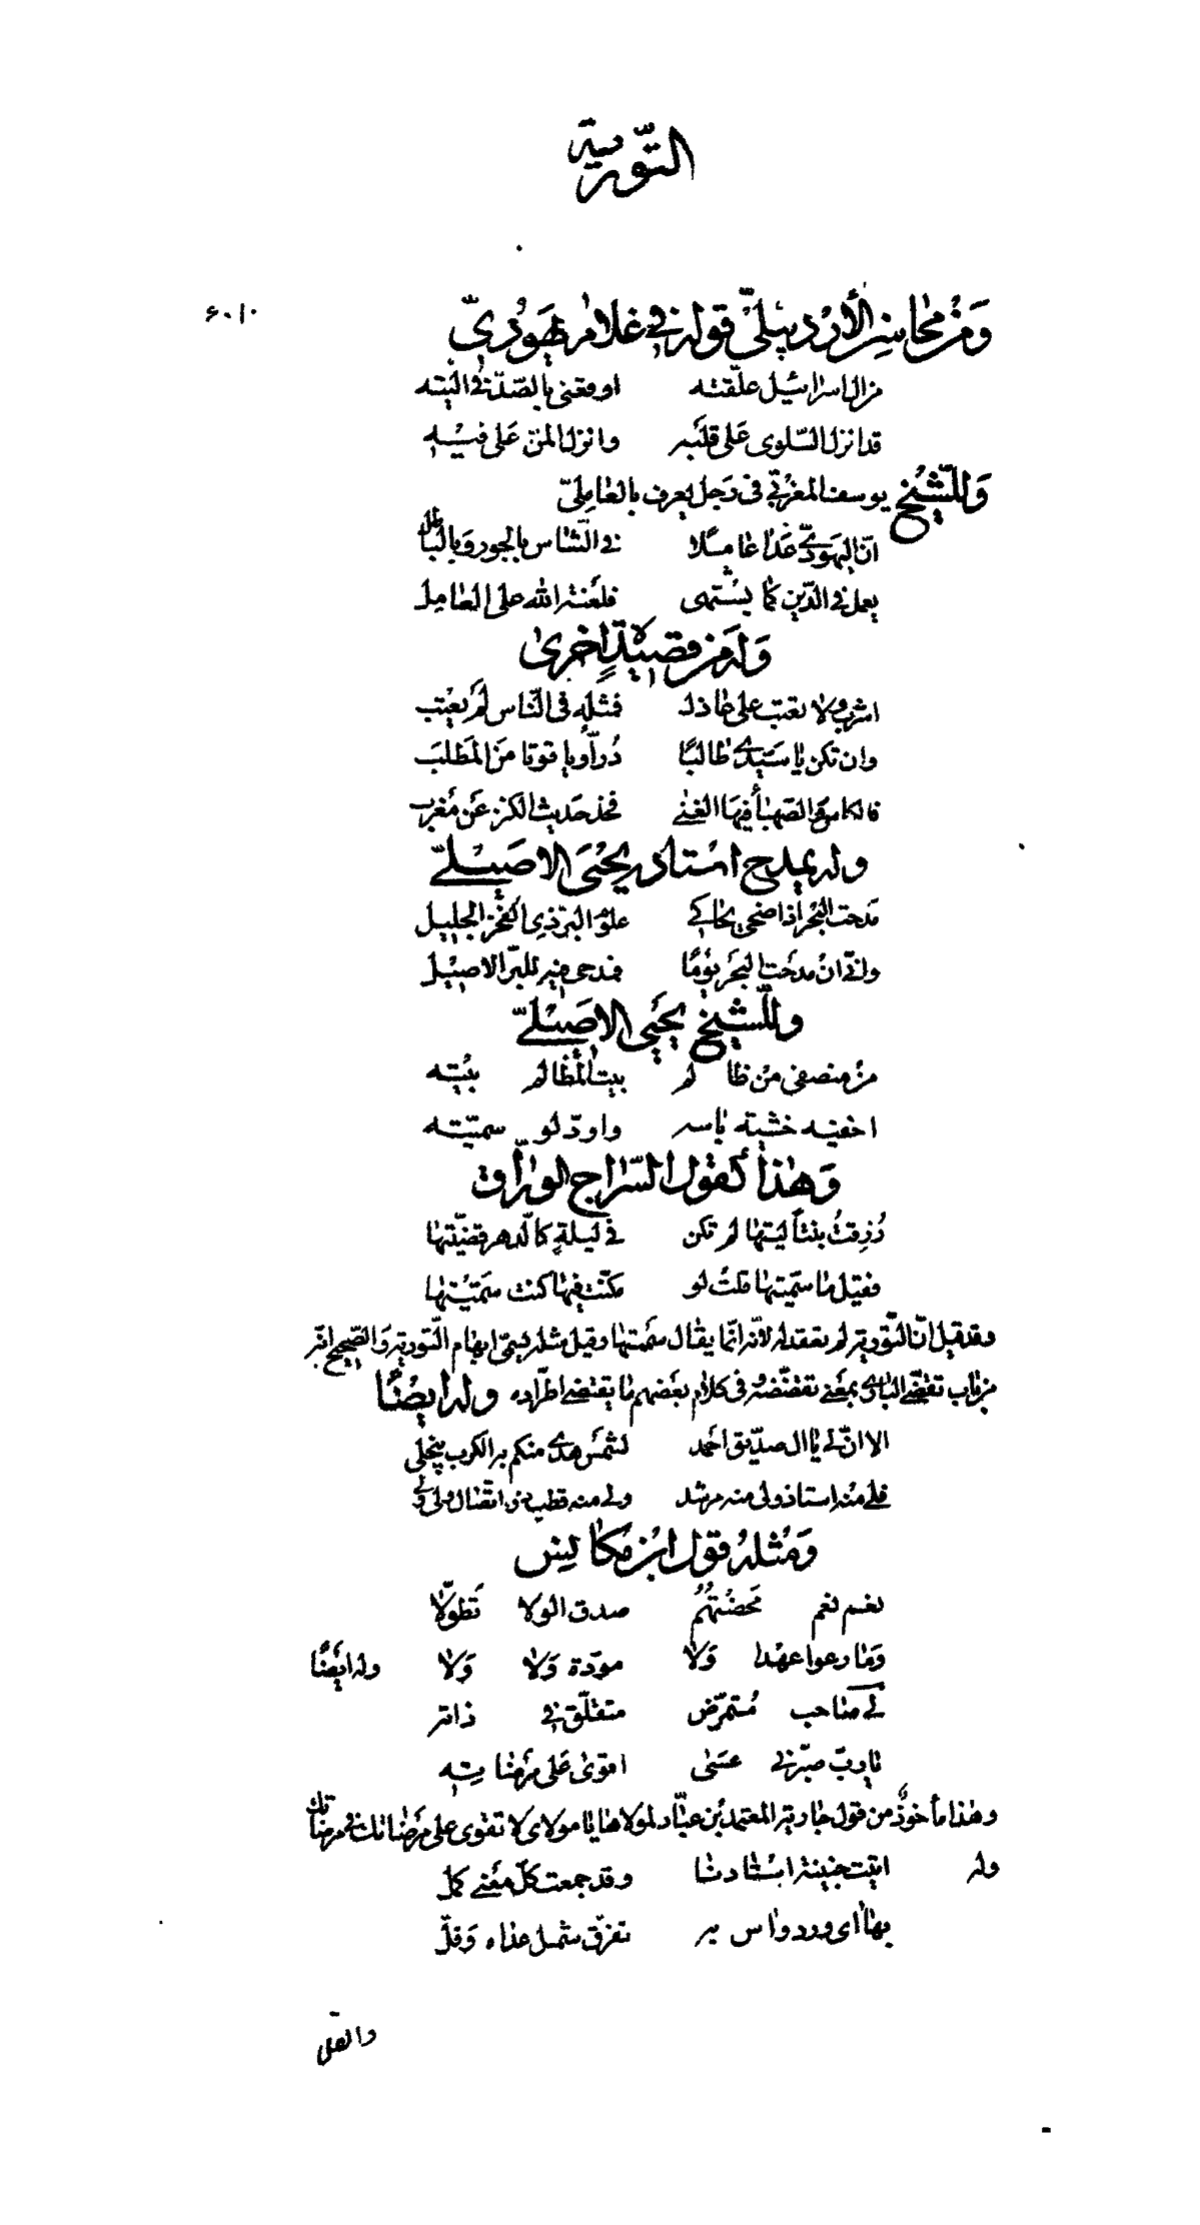 التّورية
٤٠١٠
وَمنْ محَاسِن الأرْدبيلّي قوله في غلامٍ يهَوُديّ
من ال اسرائيل علّقته اوقعنى بالصّدّ في التيه
قد انزل السّلوى عَلى قلبَه وانزل المنّ عَلى فيْه
وَللشّيْخ يوسف المغرْبّي فى رَجل يعرف بالعَامِليّ
انّ اليهَوديّ غدَا عَامِلًا في النّاس بالجور وَبالباطل
يعمل في الدّين كما يشتهى فلعْنة الله على العَامِل
وَله من قصيدةٍ اخرىٰ
اشرب ولا تعتب على عَاذل فمثله فى النّاس لمْ يعْتب
وان تكن يا سَيّدي طَالبًا دُرّاً وياقوتا منَ المَطلبَ
فالكاس والصّهبَاُ فيهَا الغنى فخذ حَديث الكنز عَن مُغرب
وله يمدح استاده يحْيَى الاصَيْليّ
مَدحت البحْر اذ اضحى يحَاكي علوم البرّ ذي الفخْر الجليل
وانّي انْ مدَحت البحَر يوْمًا فمدحى فيه للبرّ الاصيْل
وللشّيخ يحَيى الاصَيْليّ
منْ منصفى منْ ظالم بيت المظالم بيْته
اخفيه خشية باسه واودّ لو سميّته
وَهٰذا كقول السّرَاج الورّاق
رُزِقتُ بنتاً ليتها لم تكن في ليلةٍ كالّدهر قضيّتها
فقيل ما سمّيتها قلتُ لو مكّنت فيهَا كنت سَمّيْتها
وقد قيل انّ التّورية لم تعقد له لانّه انّما يقال سَمّمتها وقيل مثله يسَمّى ايهَام التّورية وَالصّحيح انّه
من بَاب تقضّي البازي بمعَنى تقضّضه وفى كلام بعَضهم مَا يقتضى اطّراده وله ايضْاً
الا انّ لي يا ال صدّيق احَمد لشمْس هدىً منكم بها الكرب ينجلى
فلي منْه استاذ ولى منه مرشد ولي منه قطب ذو اتصَال ولي ولي
وَمثله قول ابنْ مكَانِس
نعم نعم محَضْتُهُم صدق الولا تَطوّلَا
وَمَا رعوا عهْدا وَلَا مودّة وَلَا وَلَا وله ايضًا
لي صَاحب مُتمرّض متقلّق في ذاته
يَاربّ صبّرني عسَى اقوىٰ عَلى مرْضَاته
وهٰذا مأخوذٌ من قول جَارية المعتمد بْن عبَّاد لمولاهَا يا مولاى لا تقوى على مرَضَاتك في مرضَاتك
وله اتيت جنينة استَادنَا وقد جمعت كلّ معْنى كمل
بهَا اى ورد واس به تفرّق شمل عذاه وَفلّ
والعلى